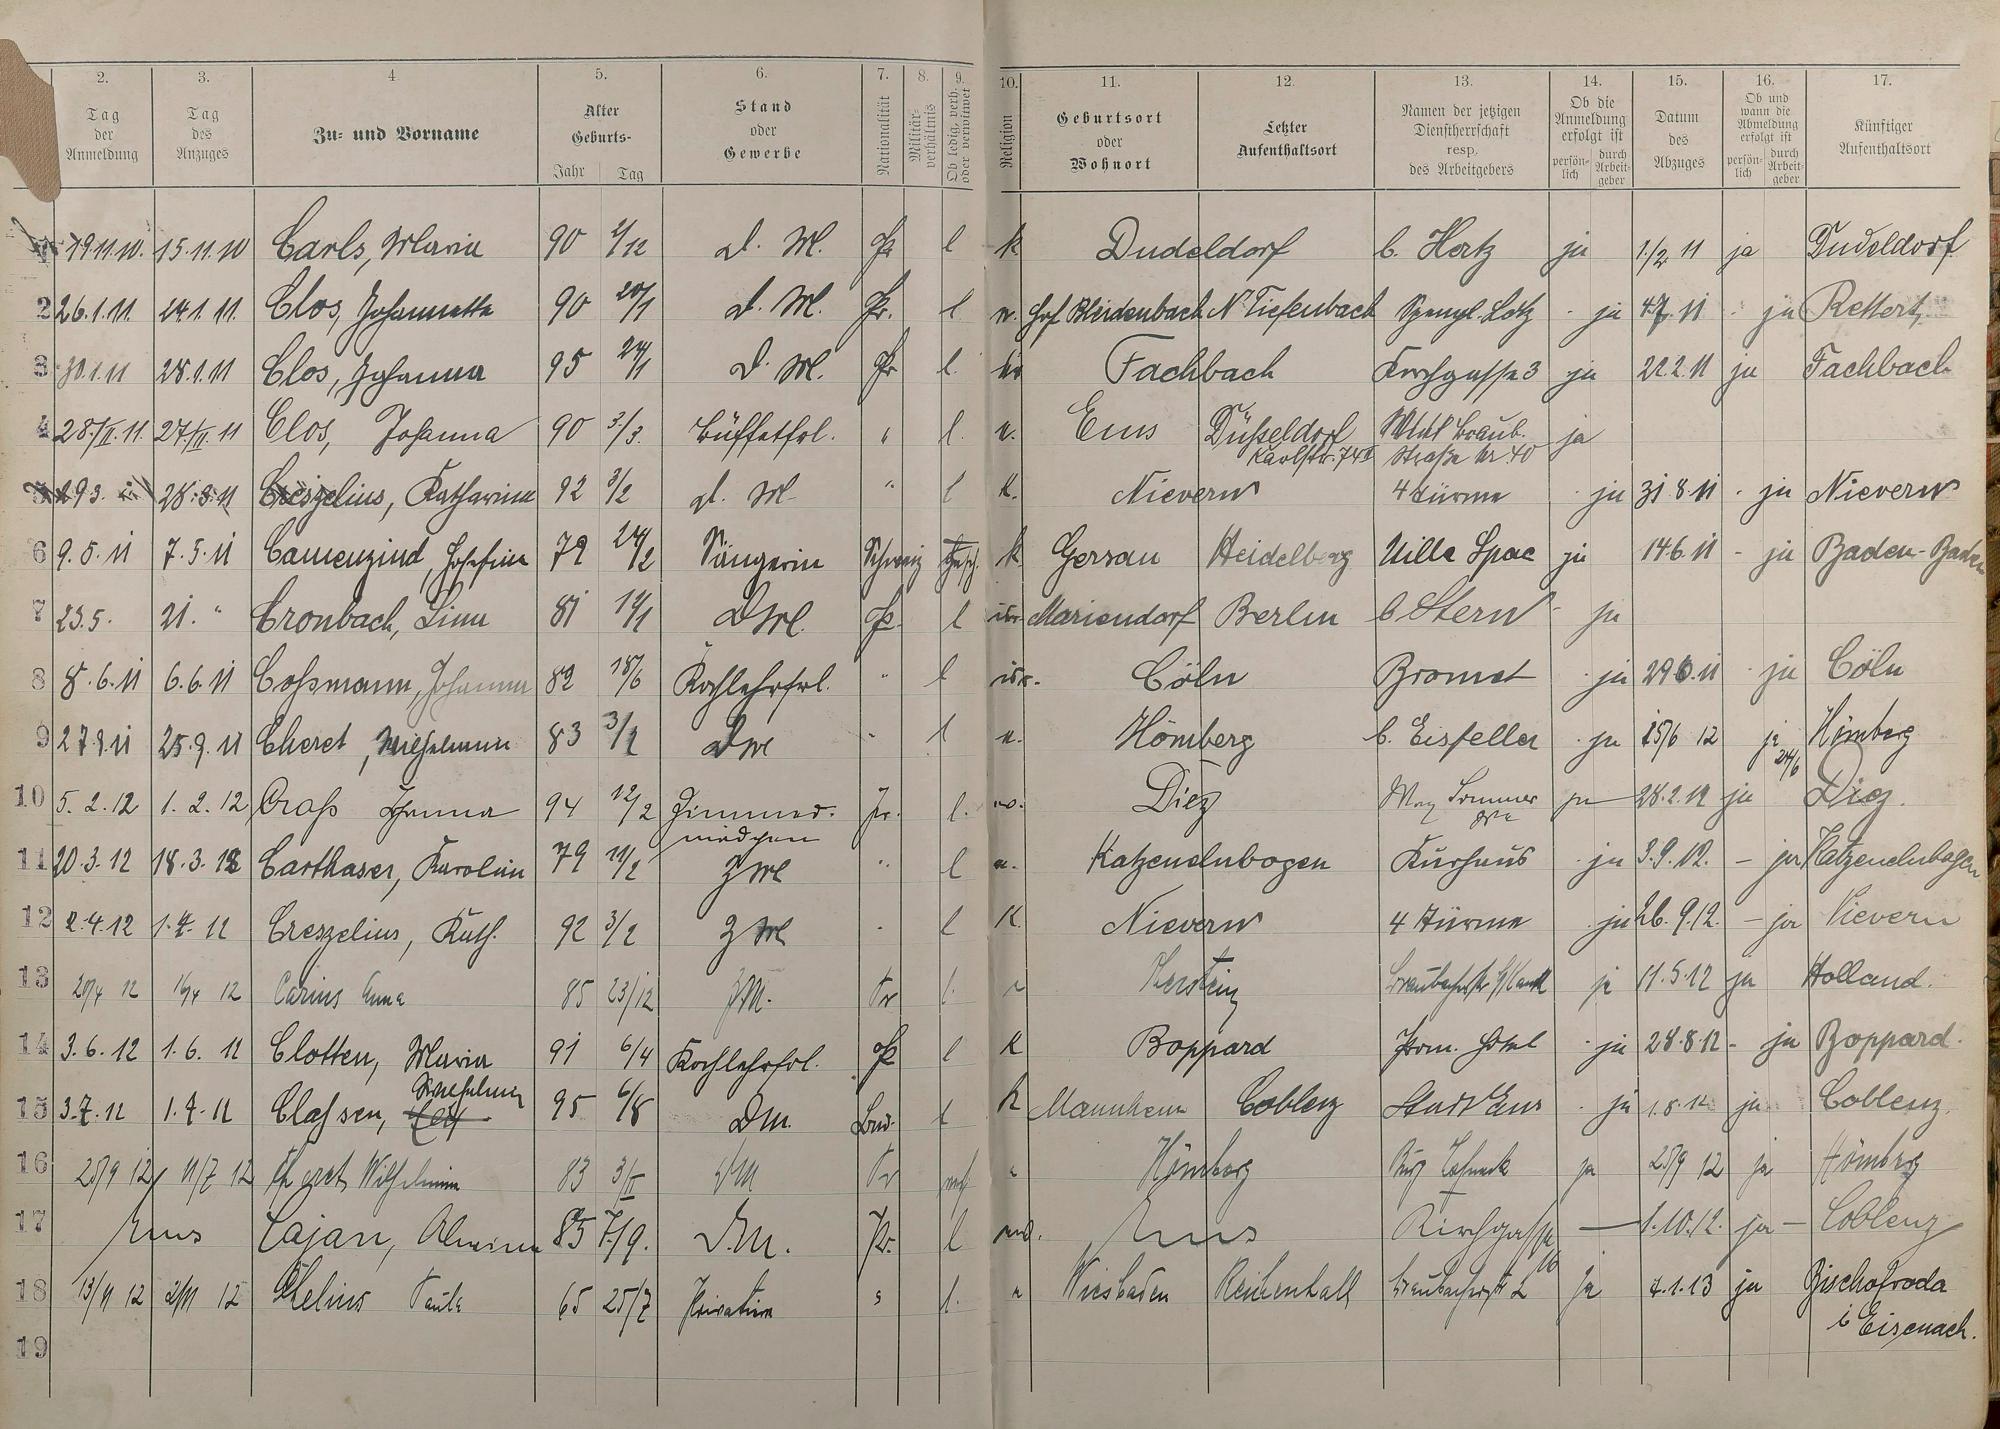 2. 3. 4 5. 6. 7. 8. 9. 10. 11. 12. 13. 14. 15. 16. 17.
Tag der Anmeldung
Tag des Anzuges
Zu- und Vorname
Alter Geburts- Jahr Tag
Stand oder Gewerbe
Nationalität
Militär-verhältnis
Ob ledig, verh. oder verwitwet
Religion
Geburtsort oder Wohnort
Letzter Aufenthaltsort
Namen der jetzigen Dienstherrschaft resp. des Arbeitgebers
Ob die Anmeldung erfolgt ist persön-lich durch Arbeit-geber
Datum des Abzuges
Ob und wann die Abmeldung erfolgt ist persön-lich durch Arbeit-geber
Künftiger Aufenthaltsort
19.11.10. 15.11.10 Carls, Maria 90 2/12 D. M. Pr l k Dudeldorf b. Hertz ja 1./2 11 ja Dudeldorf
2 26.1.11. 24.1.11. Clos, Johannette 90 20/1 D. M. Pr. l Hof Bleidenbach N. Tiefenbach Spengl. Lotz ja 4.7.11 ja Rettert
3 30.1.11 28.1.11 Clos, Johanna 95 24/1 D. M. Pr l. Fachbach Kirchgasse 3 ja 22.2.11 ja Fachbach
4 28./II.11. 27./II.11 Clos, Johanna 90 3./3. Büffetfrl. " l. Ems Düsseldorf Braub. ja
Karlstr. 74 Straße Nr. 40
28.3.11 Creszelius, Katharina 92 3/2 D. M. " l k. Nievern 4 Türme ja 31.8.11 ja Nievern
6 9.5.11 7.5.11 Camenzind, Josefine 79 24/2 Sängerin Schweiz gesch. k Gersau Heidelberg Villa Spae ja 14.6.11 - ja Baden-Baden
7 23.5. 21. " Cronbach, Lina 81 DM Pr. l isr Mariendorf Berlin b Stern ja
8 8.6.11 6.6.11 Coßmann, Johanna 82 18/6 Kochlehrfrl. " l isr. Cöln Bromet ja 29.6.11 ja Cöln
9 27.9.11 25.9.11 Cheret, Wilhelmine 83 3/2 DM " l Hömberg b. Eisfeller ja 15/6 12 ja 24/6 Hömberg
10 5.2.12 1.2.12 Craß 94 12/2 Zimmer-mädchen Pr. l. Diez Sommer ja 28.2.12 ja Diez.
11 20.3.12 18.3.12 Carthaser, Karolin 79 11/2 ZM " l Katzenelnbogen Kurhaus ja 3.9.12. - ja Katzenelnbogen
12 2.4.12 1.4.12 Creszelius, Kath. 92 3/2 ZM l K Nievern 4 Türme ja 26.9.12. - ja Nievern
13 20/4 12 12 Carius Anna 85 23/12 ZM. Pr l. ja 11.5.12 ja Holland.
14 3.6.12 1.6.12 Clotten, Maria 91 6/4 Kochlehrfrl. Pr l k Boppard Prom. Hotel ja 28.8.12 - ja Boppard.
15 3.7.12 1.7.12 Claßen, Wilhelmine 95 6/8 DM. l k Mannheim Coblenz Stadt Ems ja 1.8.12 ja Coblenz.
16 25/9 12 11/7 12 Wilhelmine 83 3/II DM Pr Hömberg Burg ja 25/9 12 ja Hömberg
17 Ems Cajan, 85 7./9. D.M. Pr. l Ems Kirchgasse 16 1.10.12. ja - Coblenz
18 13/11 12 2/11 12 Paula 65 25/7 Privatiere l. Wiesbaden Reichenhall ja 4.1.13 ja Bischofroda
b Eisenach.
19